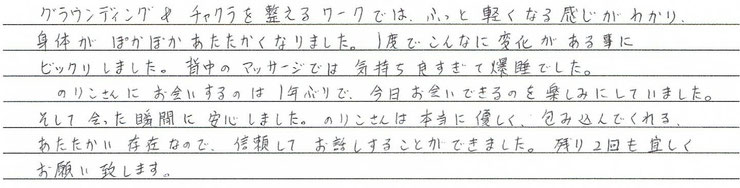 グラウンディング & チャクラを整えるワークでは、ふっと軽くなる感じがわかり、
身体がぽかぽかあたたかくなりました。1度でこんなに変化がある事に
ビックリしました。背中のマッサージでは気持ち良すぎて爆睡でした。
のりこさんにお会いするのは1年ぶりで、今日お会いできるのを楽しみにしていました。
そして会った瞬間に安心しました。のりこさんは本当に優しく、包み込んでくれる、
あたたかい存在なので、信頼してお話しすることができました。残り2回も宜しく
お願い致します。